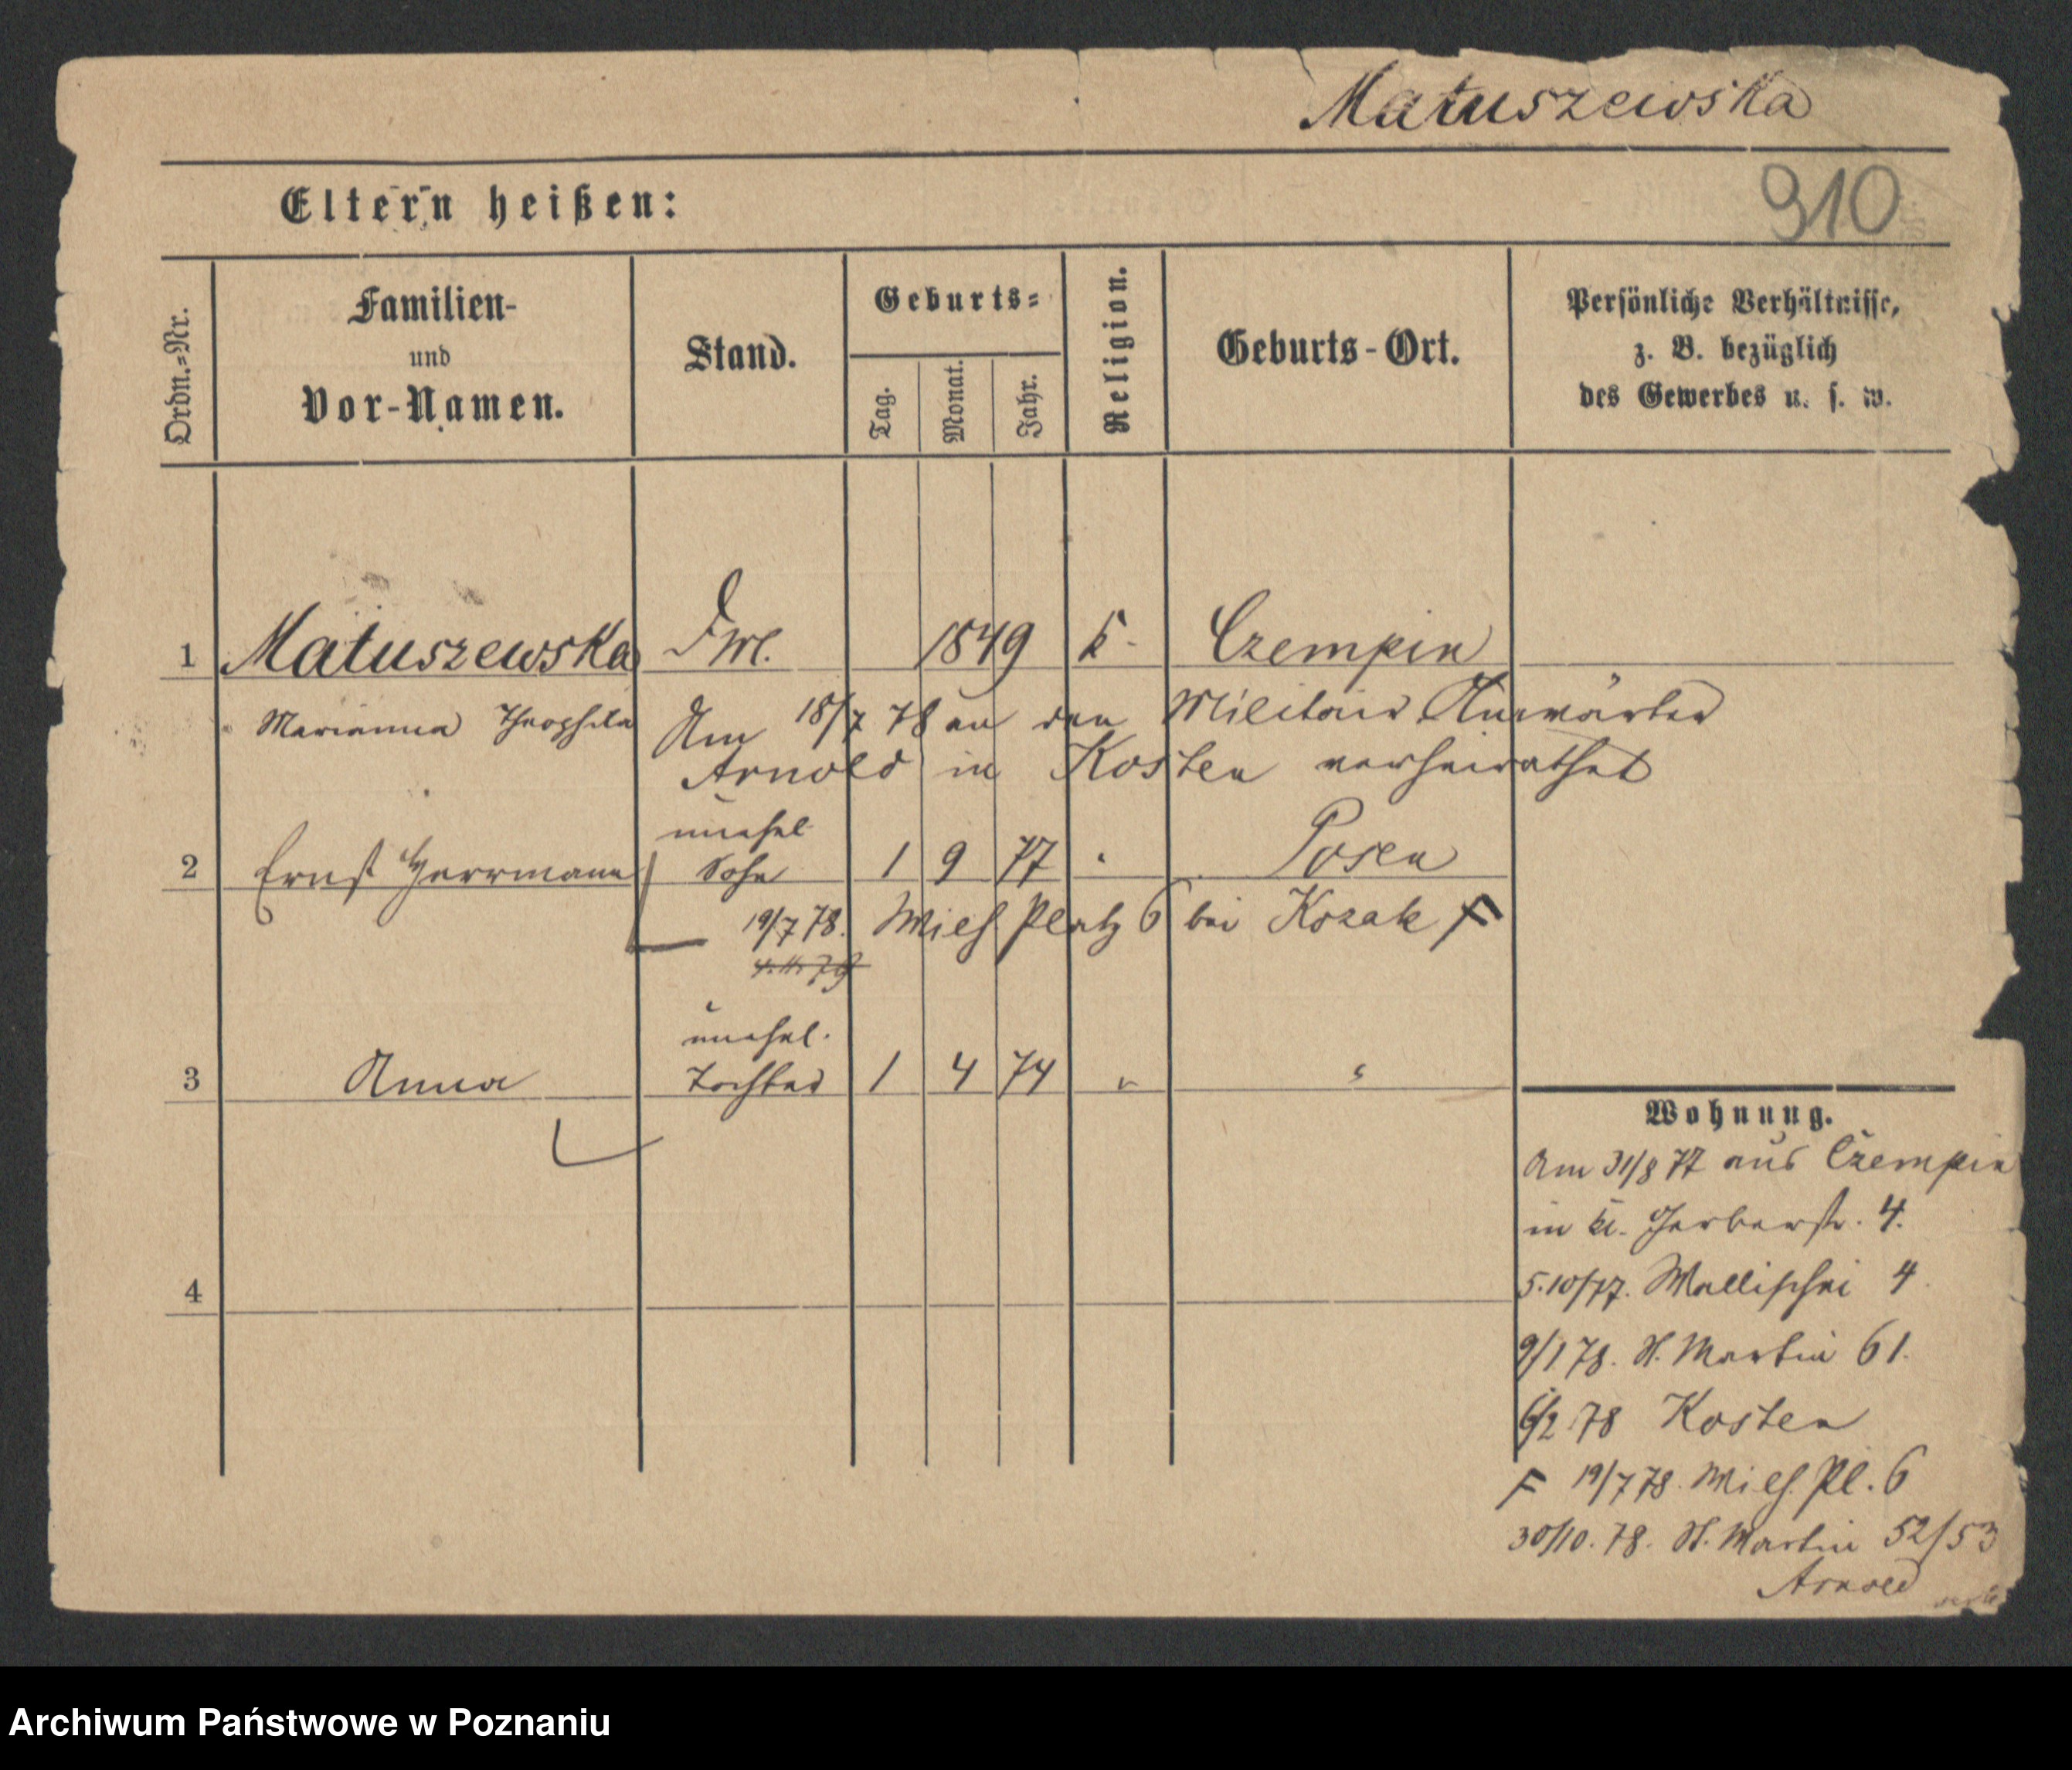 Matuszewska
910
Eltern heißen:
Ordn.-Nr.
Familien-
und
Vor-Namen.
Stand.
Geburts-
Tag.
Monat.
Jahr.
Religion.
Geburts-Ort.
Persönliche Verhältnisse,
z. B. bezüglich
des Gewerbes u. s. w.
1 Matuszewska 1849 k. Czempin
Marianna Theophila
Am 18/7 78 an den Militair Anwärter
Arnold in Kosten verheirathet
unehel
2 Ernst Herrmann Sohn 1 9 77 " Posen
19/7 78. Wils. Platz 6 bei Kozak F
unehel.
3 Anna Tochter 1 4 74 " "
4
Wohnung.
Am 31/8 77 aus Czempin
in kl. Gerberstr. 4.
5.10/77. Wallischei 4
9/1 78. St. Martin 61.
6/2 78 Kosten
F 19/7 78. Wils. Pl. 6
30/10. 78. St. Martin 52/53
Arnold
Archiwum Państwowe w Poznaniu